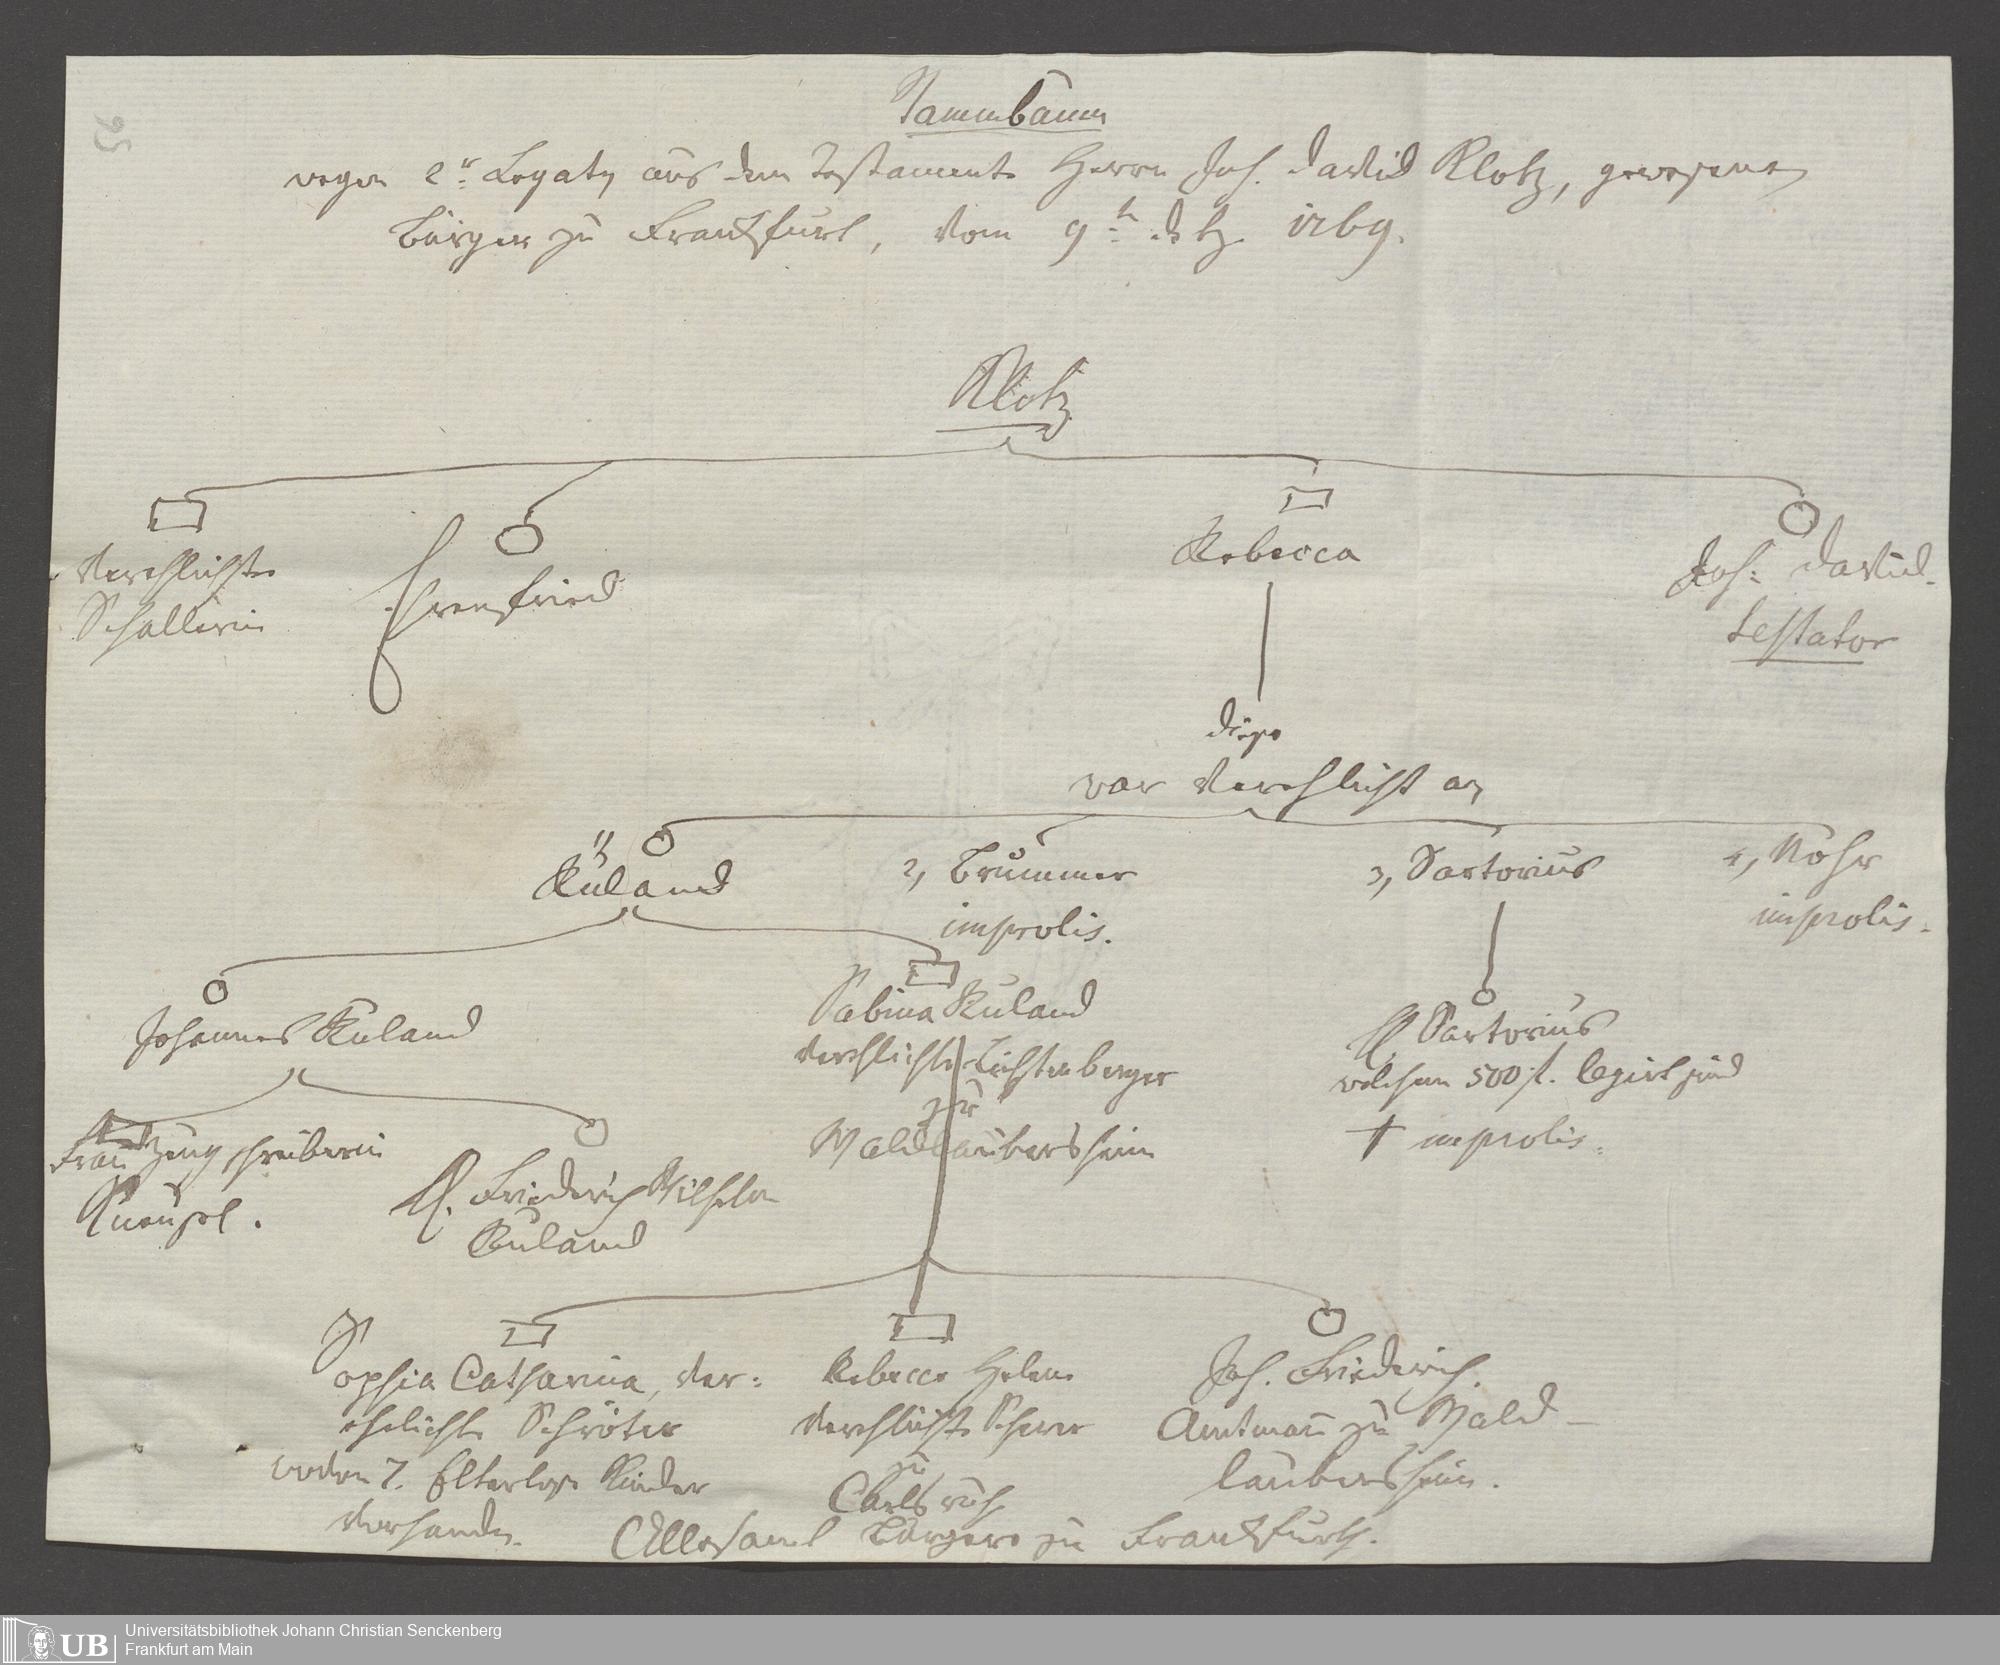 Stammbaum
wegen 2r Legaten aus dem Testamente Herrn Joh. David Klotz, gewesenen
Bürger zu Franckfurt, vom 9t
Klotz
Verehlichte
Schallerin
Ehrenfried
Rebecca
Joh: David.
testator
diese
war verehlicht an
1, Ruland
2, Brummer
improlis.
3, Sartorius
4, Mohr
improlis.
Johannes Ruland
Sabina Ruland
verehlichte Lichtenberger
zu
Waldlaubersheim
H. Sartorius
welchem 500 f. legirt sind
† improlis.
Frau Zeugschreiberin
Kneusel.
H. Friederich Wilhelm
Ruland
Sophia Catharina, ver:
ehelichte Schröter
wovon 7. Elterlose Kinder
vorhanden.
Rebecca Helena
verehlichte Scherer
zu
Carlsruh
Joh. Friederich.
Amtmann zu Wald-
laubersheim.
Allesamt Bürgere zu Franckfurth.
95
UB
Universitätsbibliothek Johann Christian Senckenberg
Frankfurt am Main